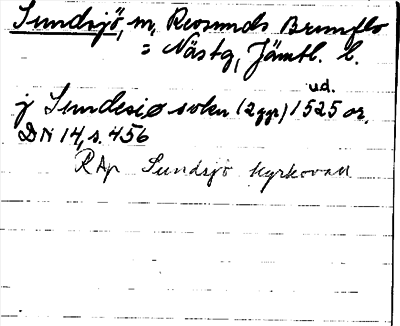 Sundsjö, m, Revsunds Brunflo
= Näs tg, Jämtl. l.
ud.
j Sundesiø sokn (2 ggr) 1525 or.
DN 14, s. 456
RAp Sundsjö kyrkovall